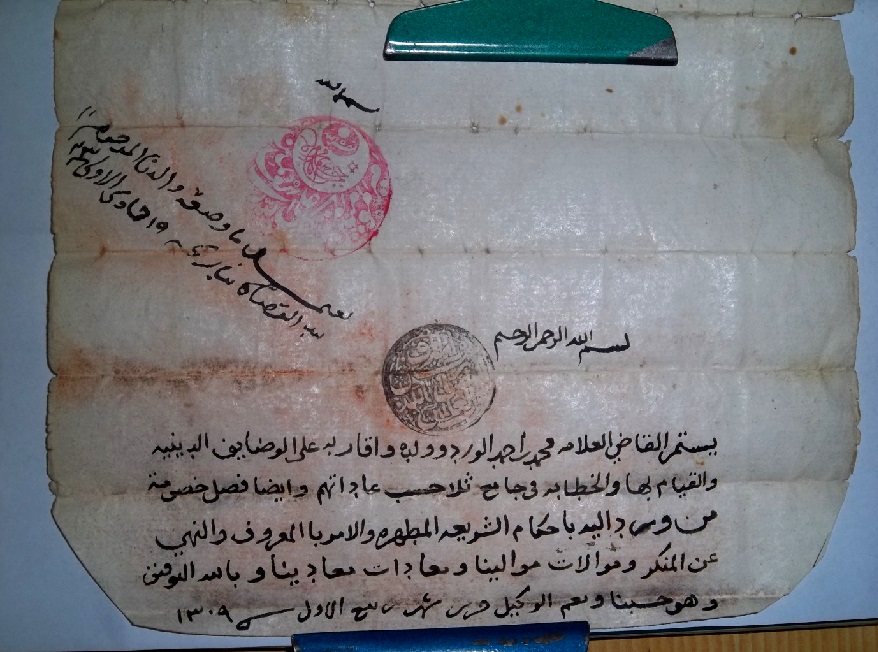 بسم الله
يعمل بما وضعه والدنا المرحوم
بيد القضاة بتاريخه ١٩ جمادى الاولى
بسم الله الرحمن الرحيم
يستمر القاضي العلامه محمد بن احمد الورد وولده واقاربه على الوضايف الدينيه
والقيام بها والخطابه في جامع ثلا حسب عاداتهم وايضا فصل خصومة
من وصل اليه باحكام الشريعه المطهره والامر با المعروف والنهي
عن المنكر وموالات موالينا ومعادات معادينا وبالله التوفيق
وهو حسبنا ونعم الوكيل وحرر شهر ربيع الاول سـ ١٣٠٩